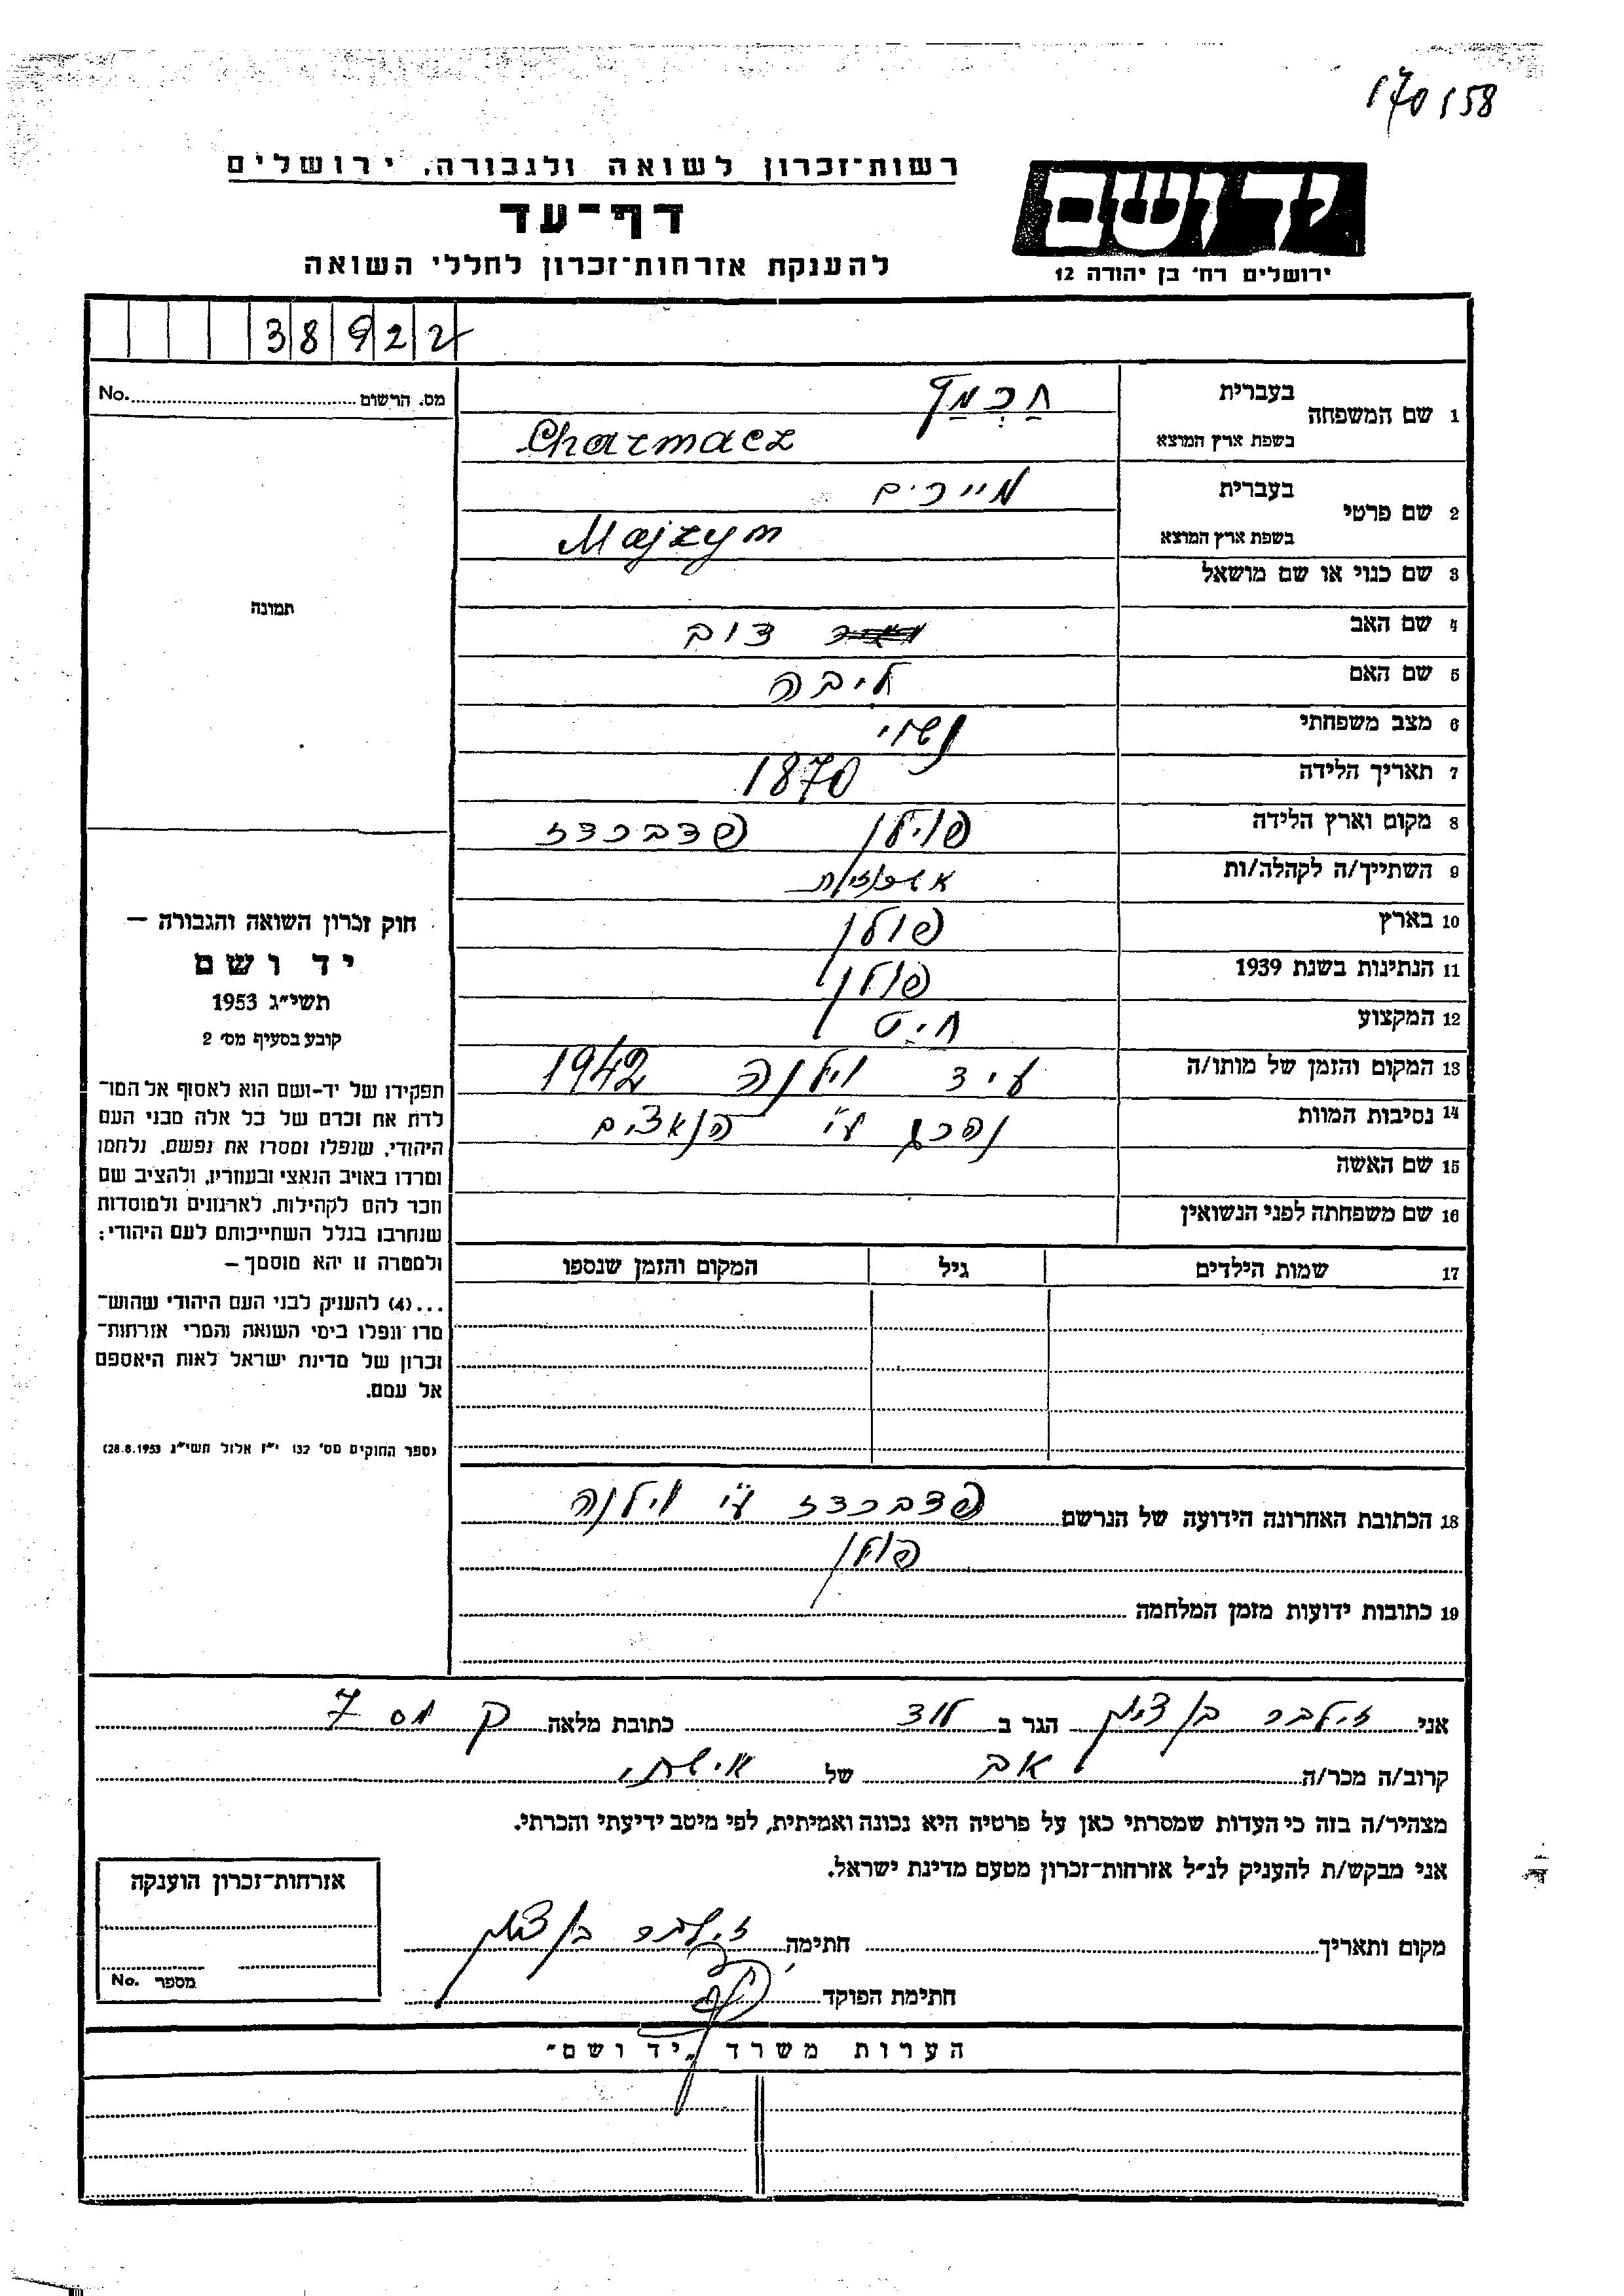 170158
רשות־זכרון לשואה ולגבורה. ירושלים
דף־עד
להענקת אזרחות־זכרון לחללי השואה
יד ושם
ירושלים רח' בן יהודה 12
38922
מס. הרשום No.
תמונה
1 שם המשפחה
בעברית חַרְמַץ
בשפת ארץ המוצא Charmacz
2 שם פרטי
בעברית מיירים
בשפת ארץ המוצא Majrym
3 שם כנוי או שם מושאל
4 שם האב דוב
5 שם האם ליבה
6 מצב משפחתי נשוי
7 תאריך הלידה 1870
8 מקום וארץ הלידה פוילן פדברדז
9 השתייך/ה לקהלה/ות
10 בארץ פולן
11 הנתינות בשנת 1939 פולן
12 המקצוע חיט
13 המקום והזמן של מותו/ה ע"י וילנה 1942
14 נסיבות המוות נהרג ע"י הנאצים
15 שם האשה
16 שם משפחתה לפני הנשואין
17 שמות הילדים גיל המקום והזמן שנספו
18 הכתובת האחרונה הידועה של הנרשם פדברדז ע"י וילנה
פולן
19 כתובות ידועות מזמן המלחמה
חוק זכרון השואה והגבורה –
יד ושם
תשי״ג 1953
קובע בסעיף מס׳ 2
תפקידו של יד־ושם הוא לאסוף אל המו־
לדת את זכרם של כל אלה מבני העם
היהודי, שנפלו ומסרו את נפשם, נלחמו
ומרדו באויב הנאצי ובעוזריו, ולהציב שם
וזכר להם לקהילות, לארגונים ולמוסדות
שנחרבו בגלל השתייכותם לעם היהודי;
ולמטרה זו יהא מוסמך –
...(4) להעניק לבני העם היהודי שהוש־
מדו ונפלו בימי השואה והמרי אזרחות־
זכרון של מדינת ישראל לאות היאספם
אל עמם.
(ספר החוקים מס׳ 132 י״ז אלול תשי״ג 28.8.1953)
אני זילבר בן ציון הגר ב לוד כתובת מלאה
קרוב/ה מכר/ה אב של אישתי
מצהיר/ה בזה כי העדות שמסרתי כאן על פרטיה היא נכונה ואמיתית, לפי מיטב ידיעתי והכרתי.
אני מבקש/ת להעניק לנ״ל אזרחות־זכרון מטעם מדינת ישראל.
מקום ותאריך חתימה זילבר בן ציון
חתימת הפוקד
אזרחות־זכרון הוענקה
מספר No.
הערות משרד „יד ושם"